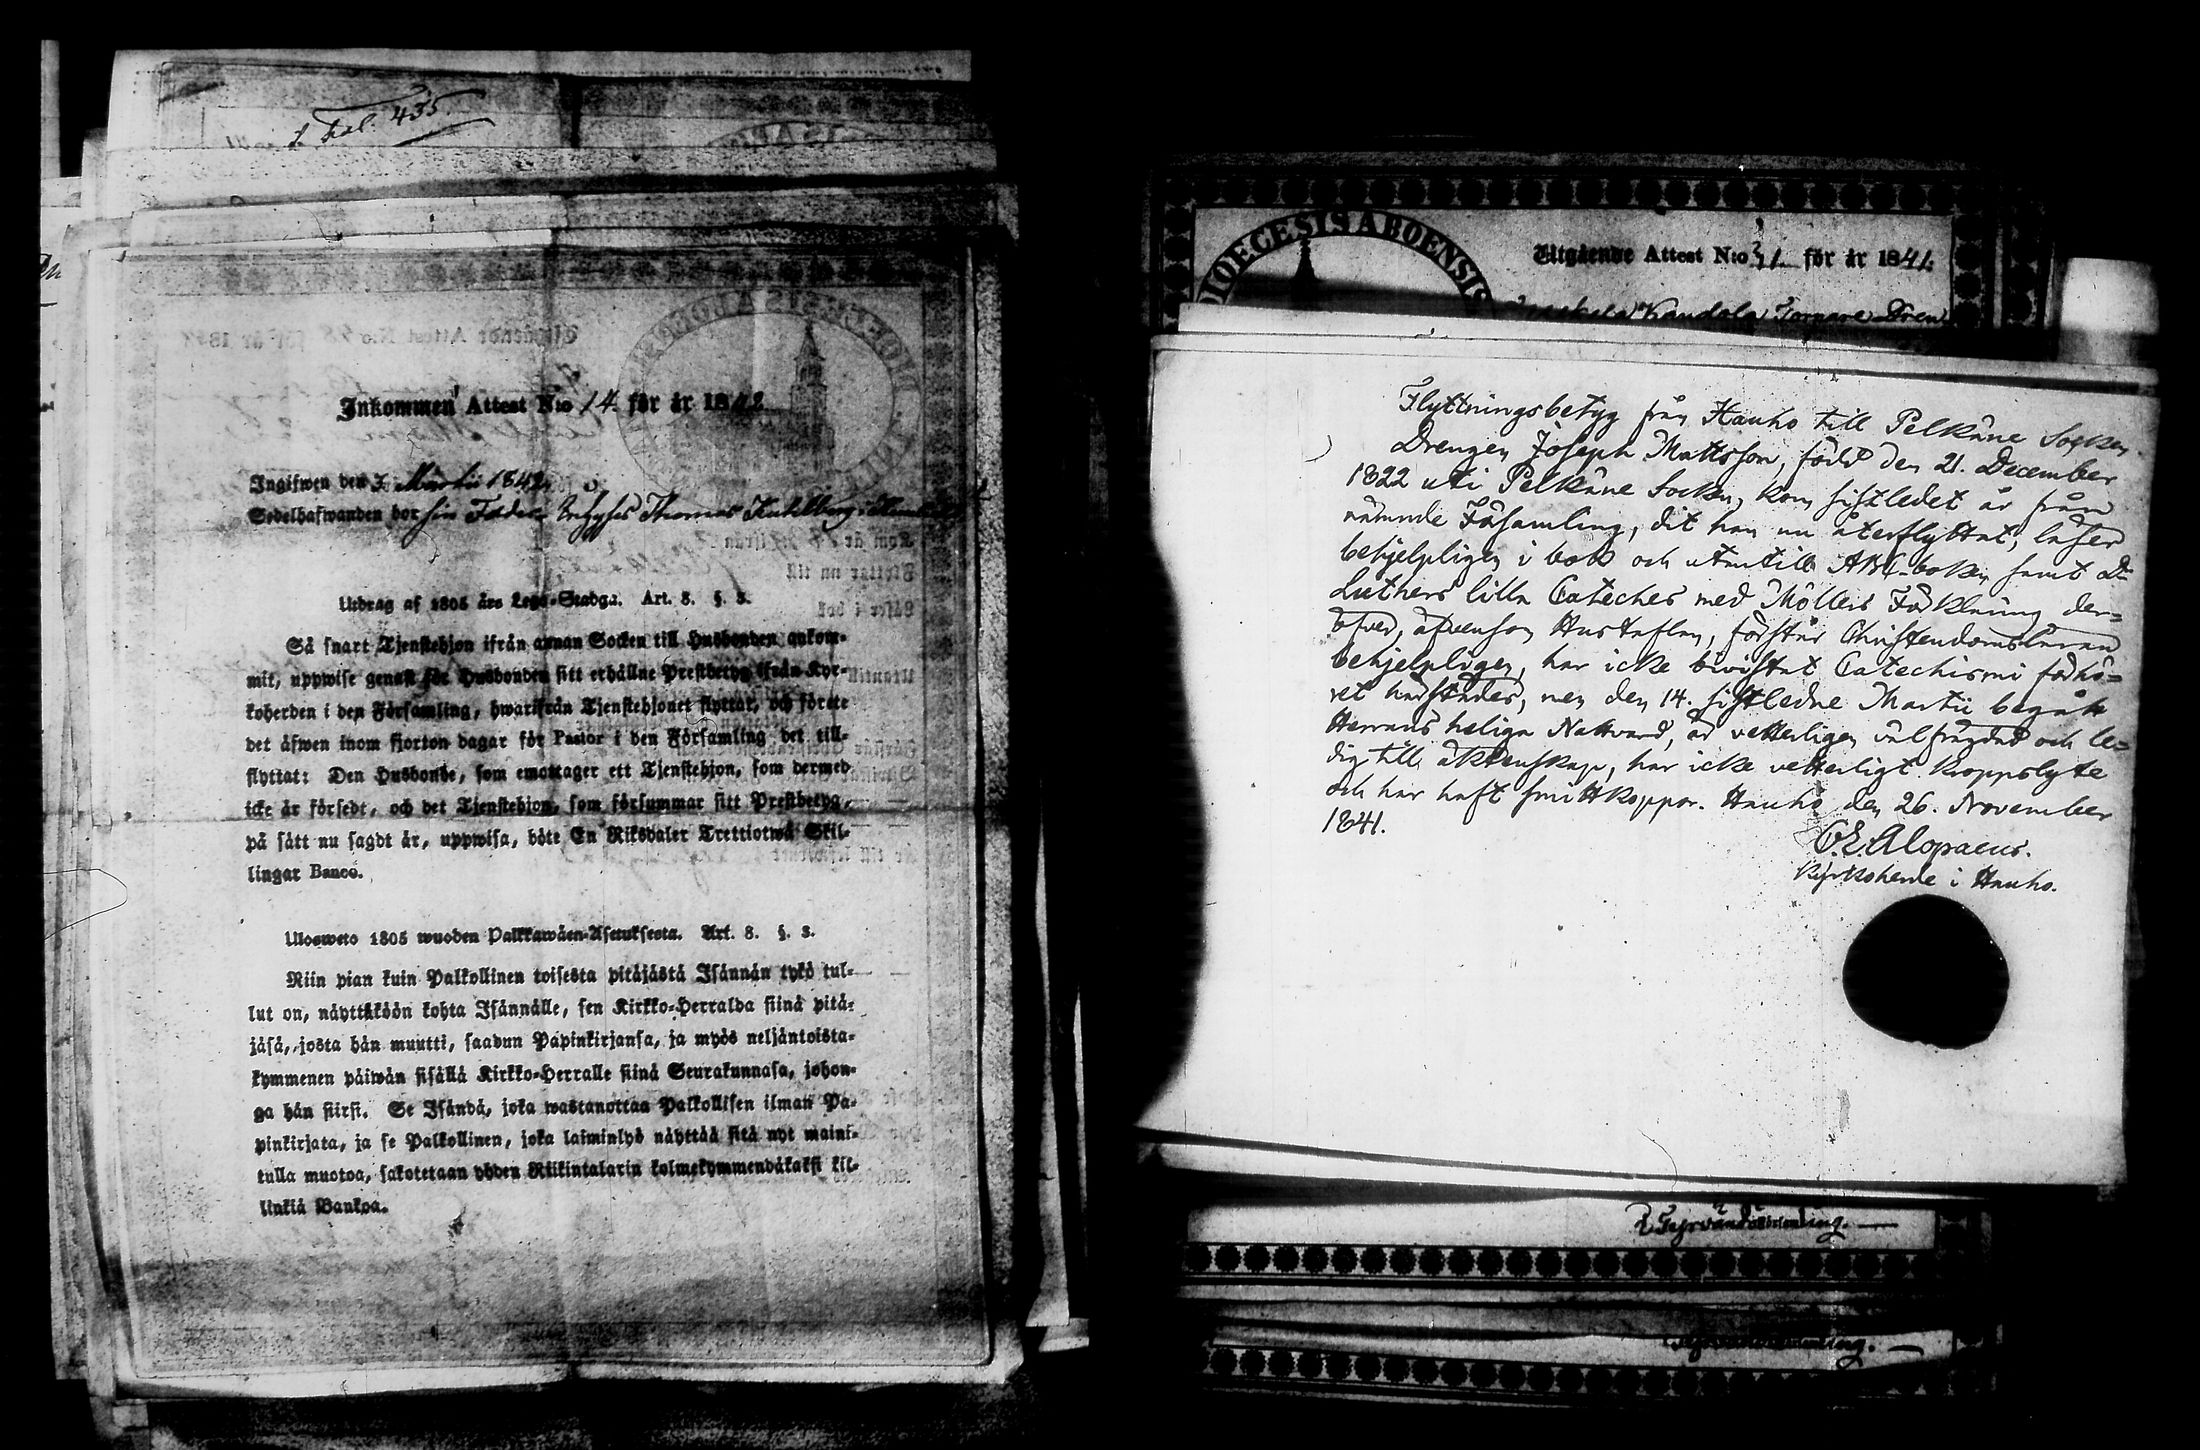 Fol. 435.
Inkommen Attest N:o 14. för år 1842
Ingifwen den 3 Martii 1842.
Sedelhafwanden hos sin Fader Thomas
Utdrag af 1805 års Lego-Stadga. Art. 8. §. 3.
Så snart Tjenstehjon ifrån annan Socken till Husbonden ankom-
mit, uppwise genast för Husbonden sitt erhållne Prestbetyg ifrån Kyr-
koherden i den Församling, hwarifrån Tjenstehjonet flyttar, och förete
det äfwen inom fjorton dagar för Pastor i den Församling det till-
flyttat: Den Husbonde, som emottager ett Tjenstehjon, som dermed
icke är försedt, och det Tjenstehjon, som försummar sitt Prestbetyg,
på sätt nu sagdt är, uppwisa, böte En Riksdaler Trettiotwå Skil-
lingar Banco.
Ulosweto 1805 wuoden Palkkawäen-Asetuksesta. Art. 8. §. 3.
Niin pian kuin Palkollinen toisesta pitäjästä Isännän tykö tul-
lut on, näyttäköön kohta Isännälle, sen Kirkko-Herralda siinä pitä-
jäsä, josta hän muutti, saadun Papinkirjansa, ja myös neljäntoista-
kymmenen päiwän sisällä Kirkko-Herralle siinä Seurakunnasa, johon-
ga hän siirsi. Se Isändä, joka wastanottaa Palkollisen ilman Pa-
pinkirjata, ja se Palkollinen, joka laiminlyö näyttää sitä nyt maini-
tulla muotoa, sakotetaan yhden Riikintalarin kolmekymmendäkaksi kil-
linkiä Bankoa.
DIOECESIS ABOENSIS
Utgående Attest N:o 31. för år 1841.
Torpare Dren
Flyttningsbetyg från Hauho till Pelkäne Socken.
Drengen Joseph Mattsson, född den 21. December
1822 uti Pelkäne Socken, kom sistledet år från
nämnde Församling, dit han nu återflyttat, läser
behjelpligen i bok och utantill ABC-boken samt D:
Luthers lilla Cateches med Möllers Förklaring der-
öfver, äfvensom Hustaflan, förstår Christendomsläran
behjelpligen, har icke bivistat Catechismi förhö-
ret härstädes, men den 14. sistledne Martii begått
Herrans heliga Nattvard, är vetterligen välfrägdad och le-
dig till äktenskap, har icke vetterligt kroppslyte
och har haft smittkoppor. Hauho den 26. November
1841.
C.E. Alopaeus.
Kyrkoherde i Hauho.